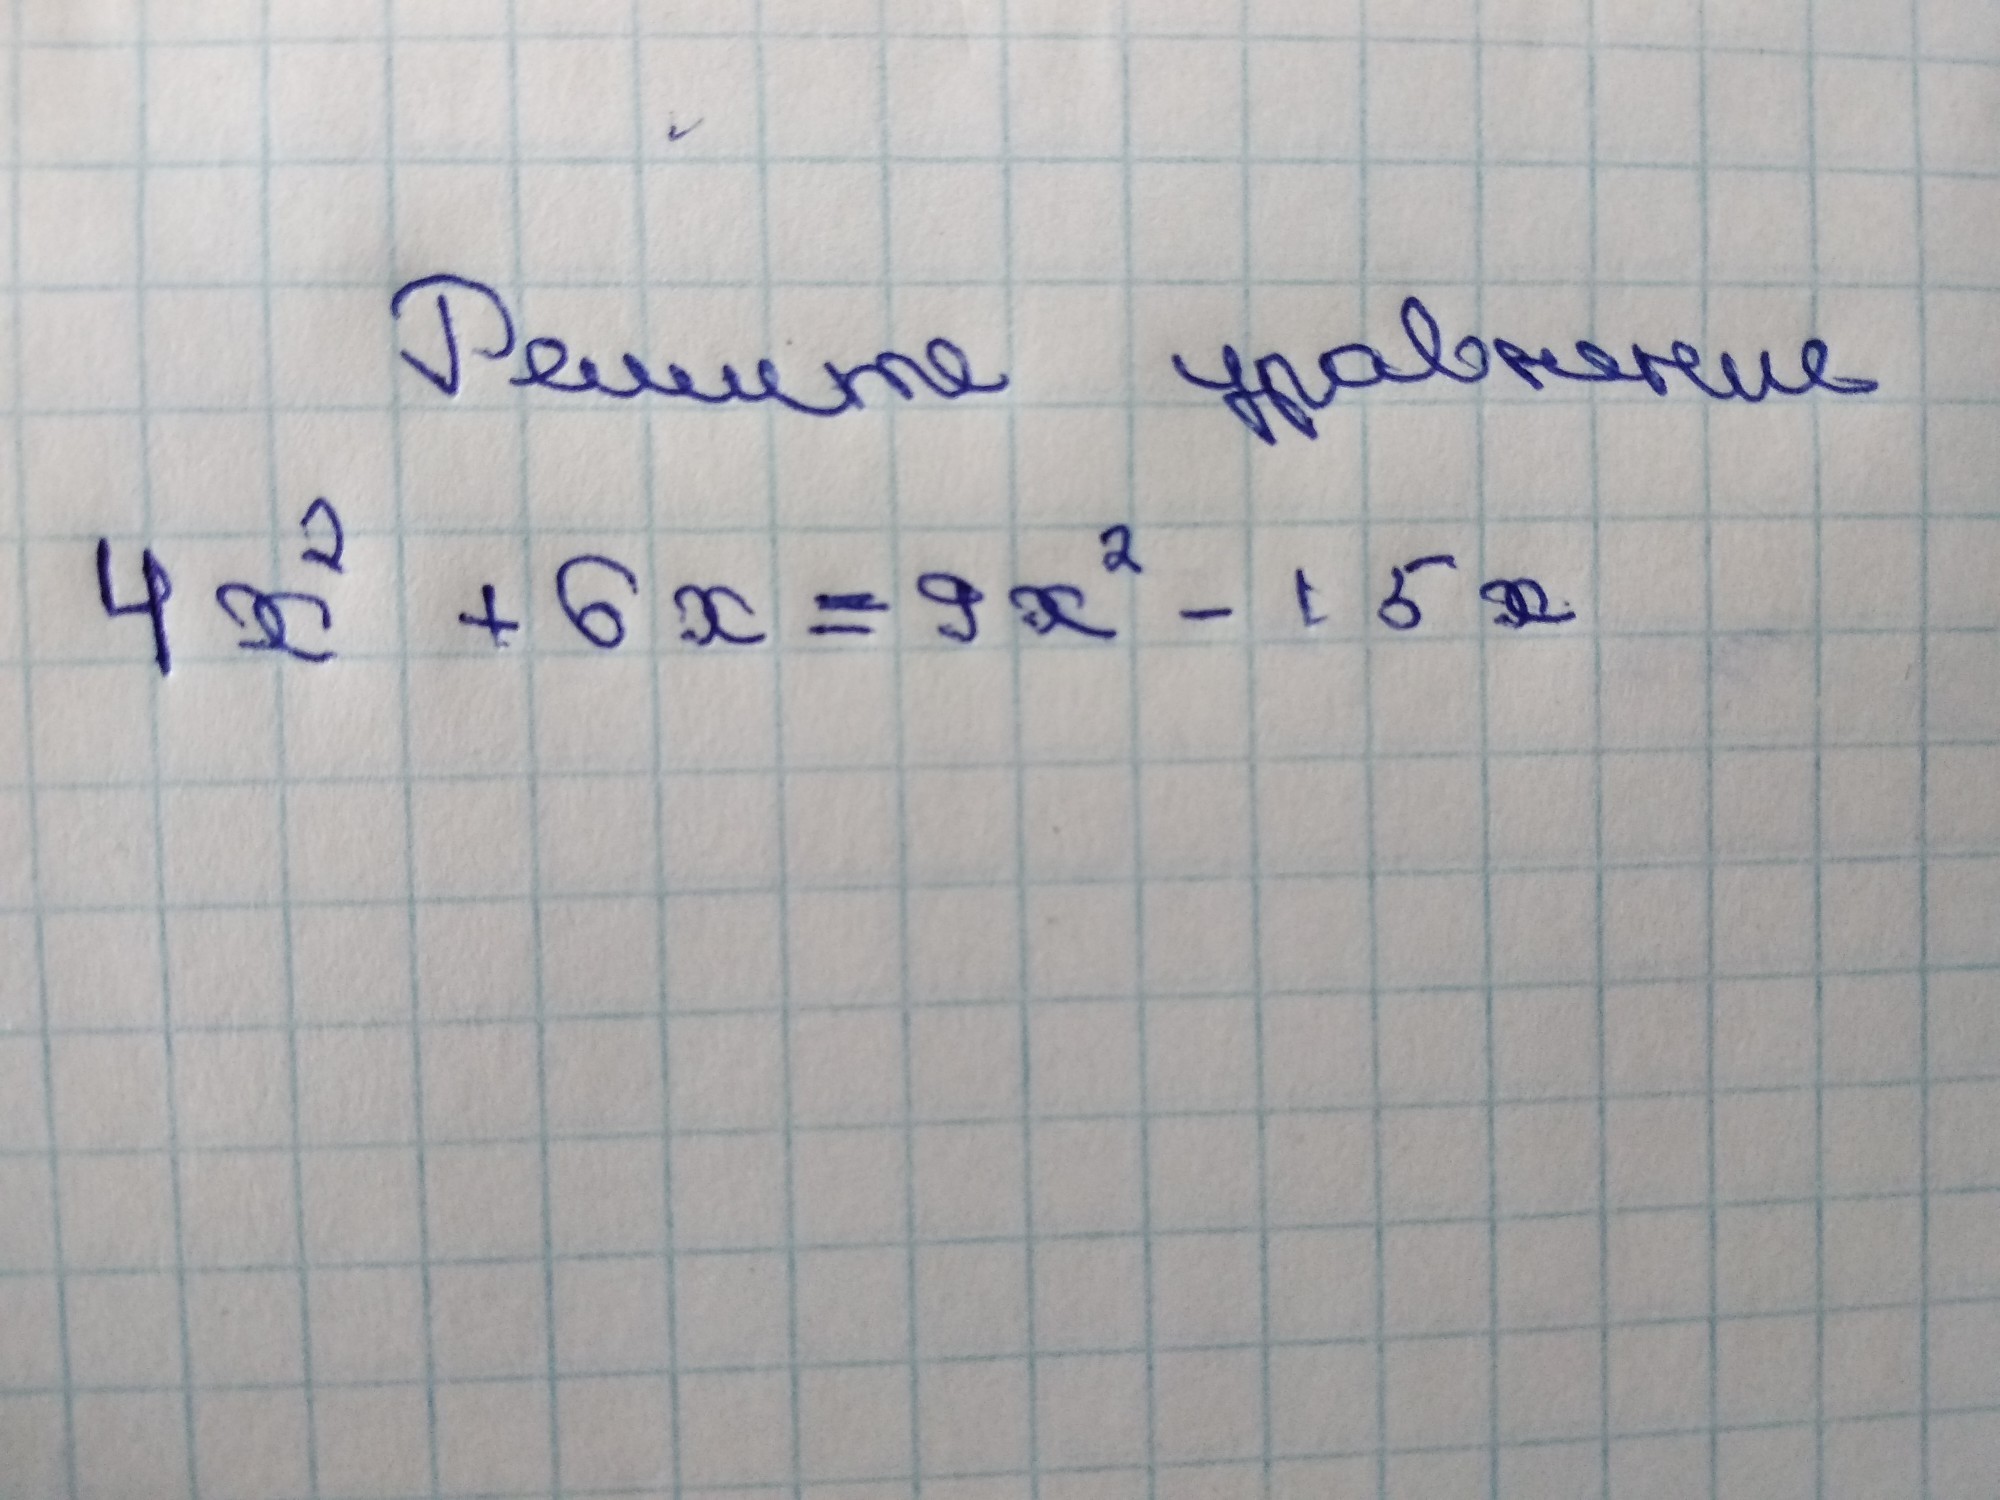 Решите уравнение
4x² + 6x = 9x² - 15x